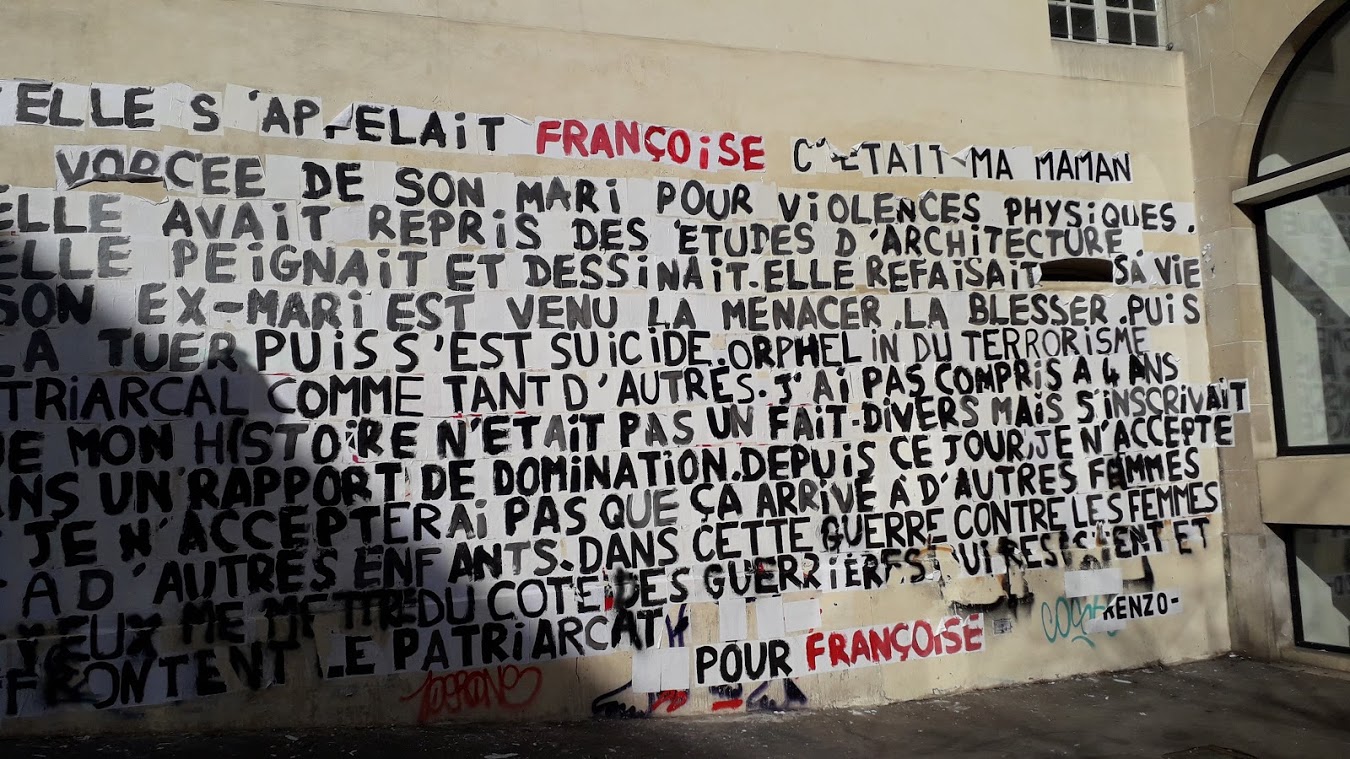 ELLE S'APPELAiT FRANÇOiSE C'ETAIT MA MAMAN
VORCEE DE SON MARi POUR ViOLENCES PHYSiQUES.
ELLE AVAiT REPRiS DES ETUDES D'ARCHITECTURE
ELLE PEiGNAiT ET DESSiNAiT. ELLE REFAiSAiT SA ViE
SON EX-MARi EST VENU LA MENACER, LA BLESSER, PUiS
LA TUER PUiS S'EST SUiCiDE. ORPHELiN DU TERRORiSME
TRiARCAL COMME TANT D'AUTRES. J'Ai PAS COMPRiS A 4 ANS
UE MON HiSTOiRE N'ETAiT PAS UN FAiT-DiVERS MAiS S'iNSCRiVAiT
ANS UN RAPPORT DE DOMiNATiON. DEPUiS CE JOUR, JE N'ACCEPTE
JE N'ACCEPTERAi PAS QUE ÇA ARRiVE À D'AUTRES FEMMES
A D'AUTRES ENFANTS. DANS CETTE GUERRE CONTRE LES FEMMES
VEUX ME METTRE DU COTE DES GUERRiERES QUi RESiSTENT ET
FFRONTENT LE PATRiARCAT POUR FRANÇOiSE
RENZO-